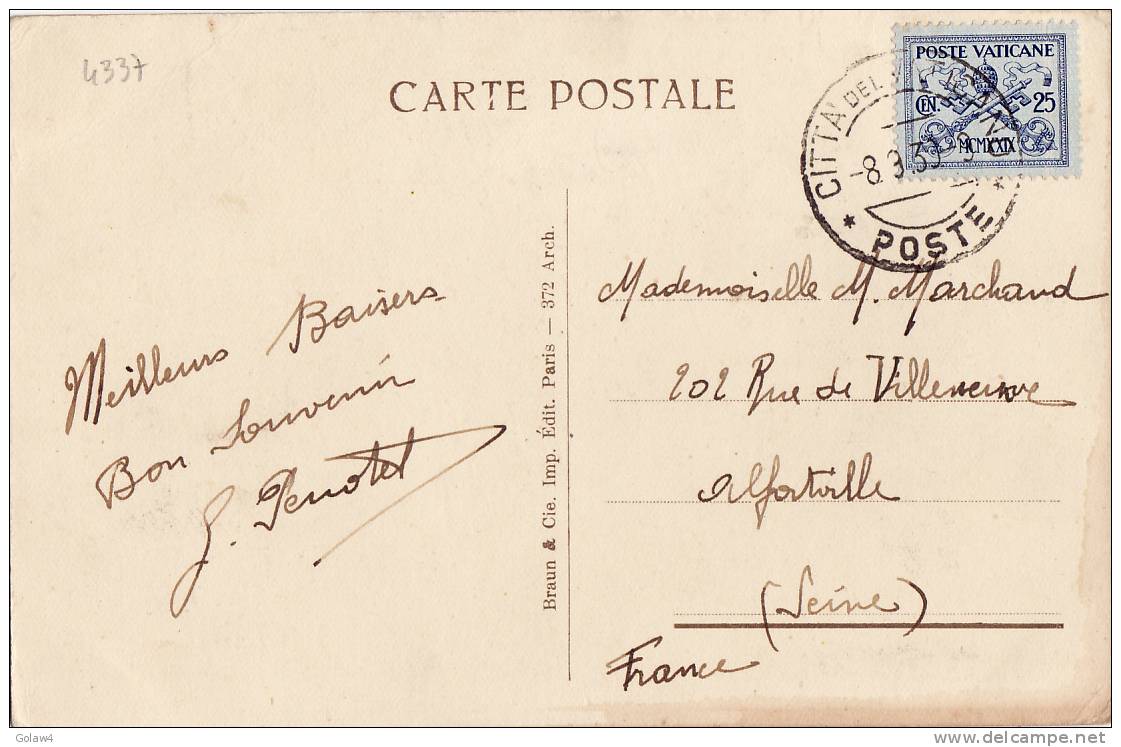 4337
CARTE POSTALE
POSTE VATICANE
CEN. 25
MCMXXIX
CITTA' DEL VATICANO
-8.9.33
* POSTE *
Meilleurs Baisers
Bon Souvenir
Braun & Cie. Imp. Édit. Paris — 372 Arch.
Mademoiselle M. Marchand
202 Rue de Villeneuve
Alfortville
(Seine)
France
Golaw4
www.delcampe.net